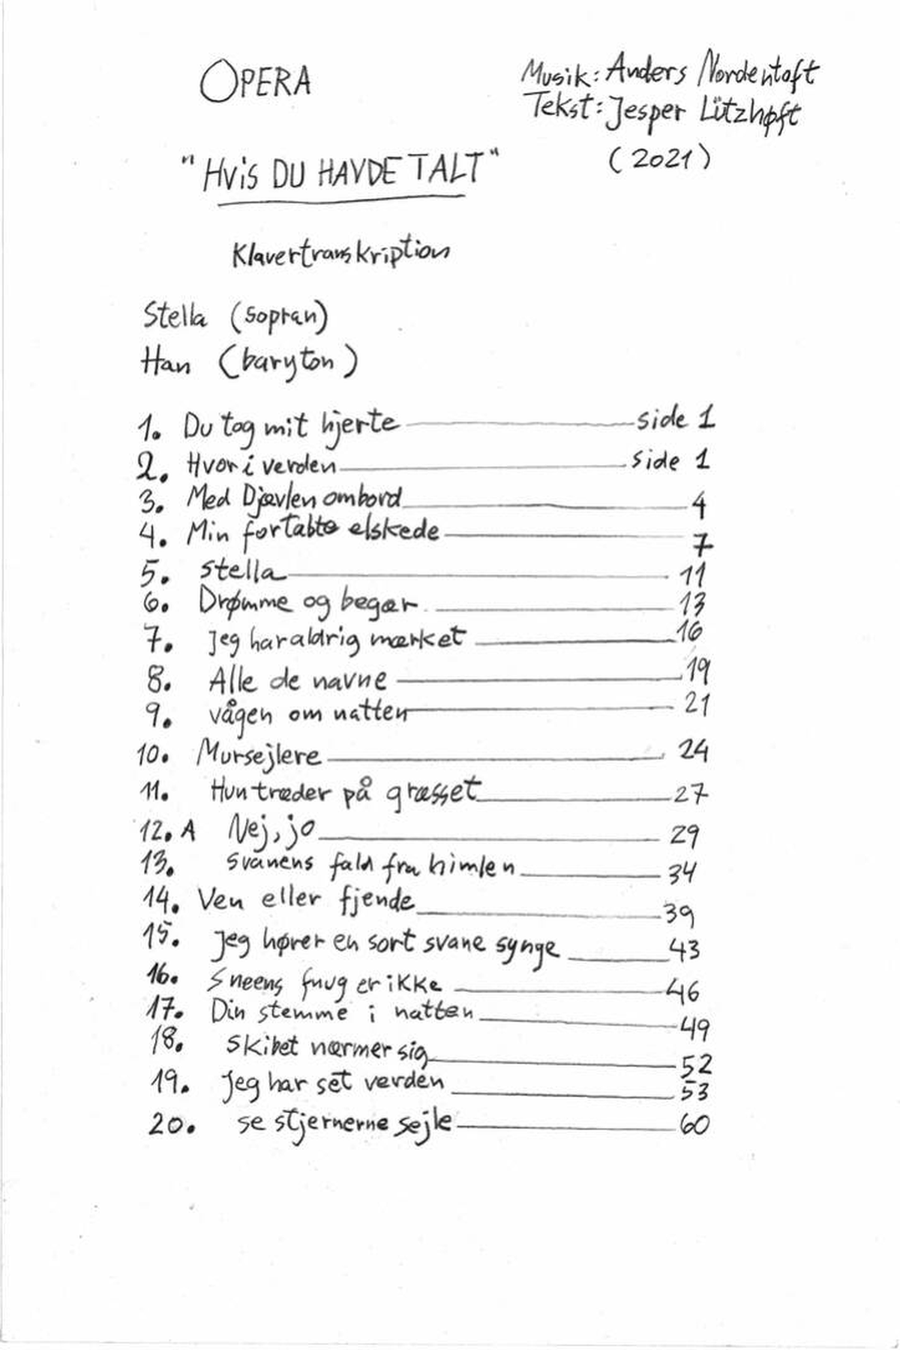 OPERA
Musik: Anders Nordentoft
Tekst: Jesper Lützhøft
(2021)
"HVIS DU HAVDE TALT"
Klavertranskription
Stella (sopran)
Han (baryton)
1. Du tog mit hjerte side 1
2. Hvor i verden side 1
3. Med Djævlen ombord 4
4. Min fortabte elskede 7
5. Stella 11
6. Drømme og begær 13
7. Jeg har aldrig mærket 16
8. Alle de navne 19
9. vågen om natten 21
10. Mursejlere 24
11. Hun træder på græsset 27
12. A Nej, jo 29
13. Svanens fald fra himlen 34
14. Ven eller fjende 39
15. Jeg hører en sort svane synge 43
16. Sneens fnug er ikke 46
17. Din stemme i natten 49
18. Skibet nærmer sig 52
19. Jeg har set verden 53
20. se stjernerne sejle 60